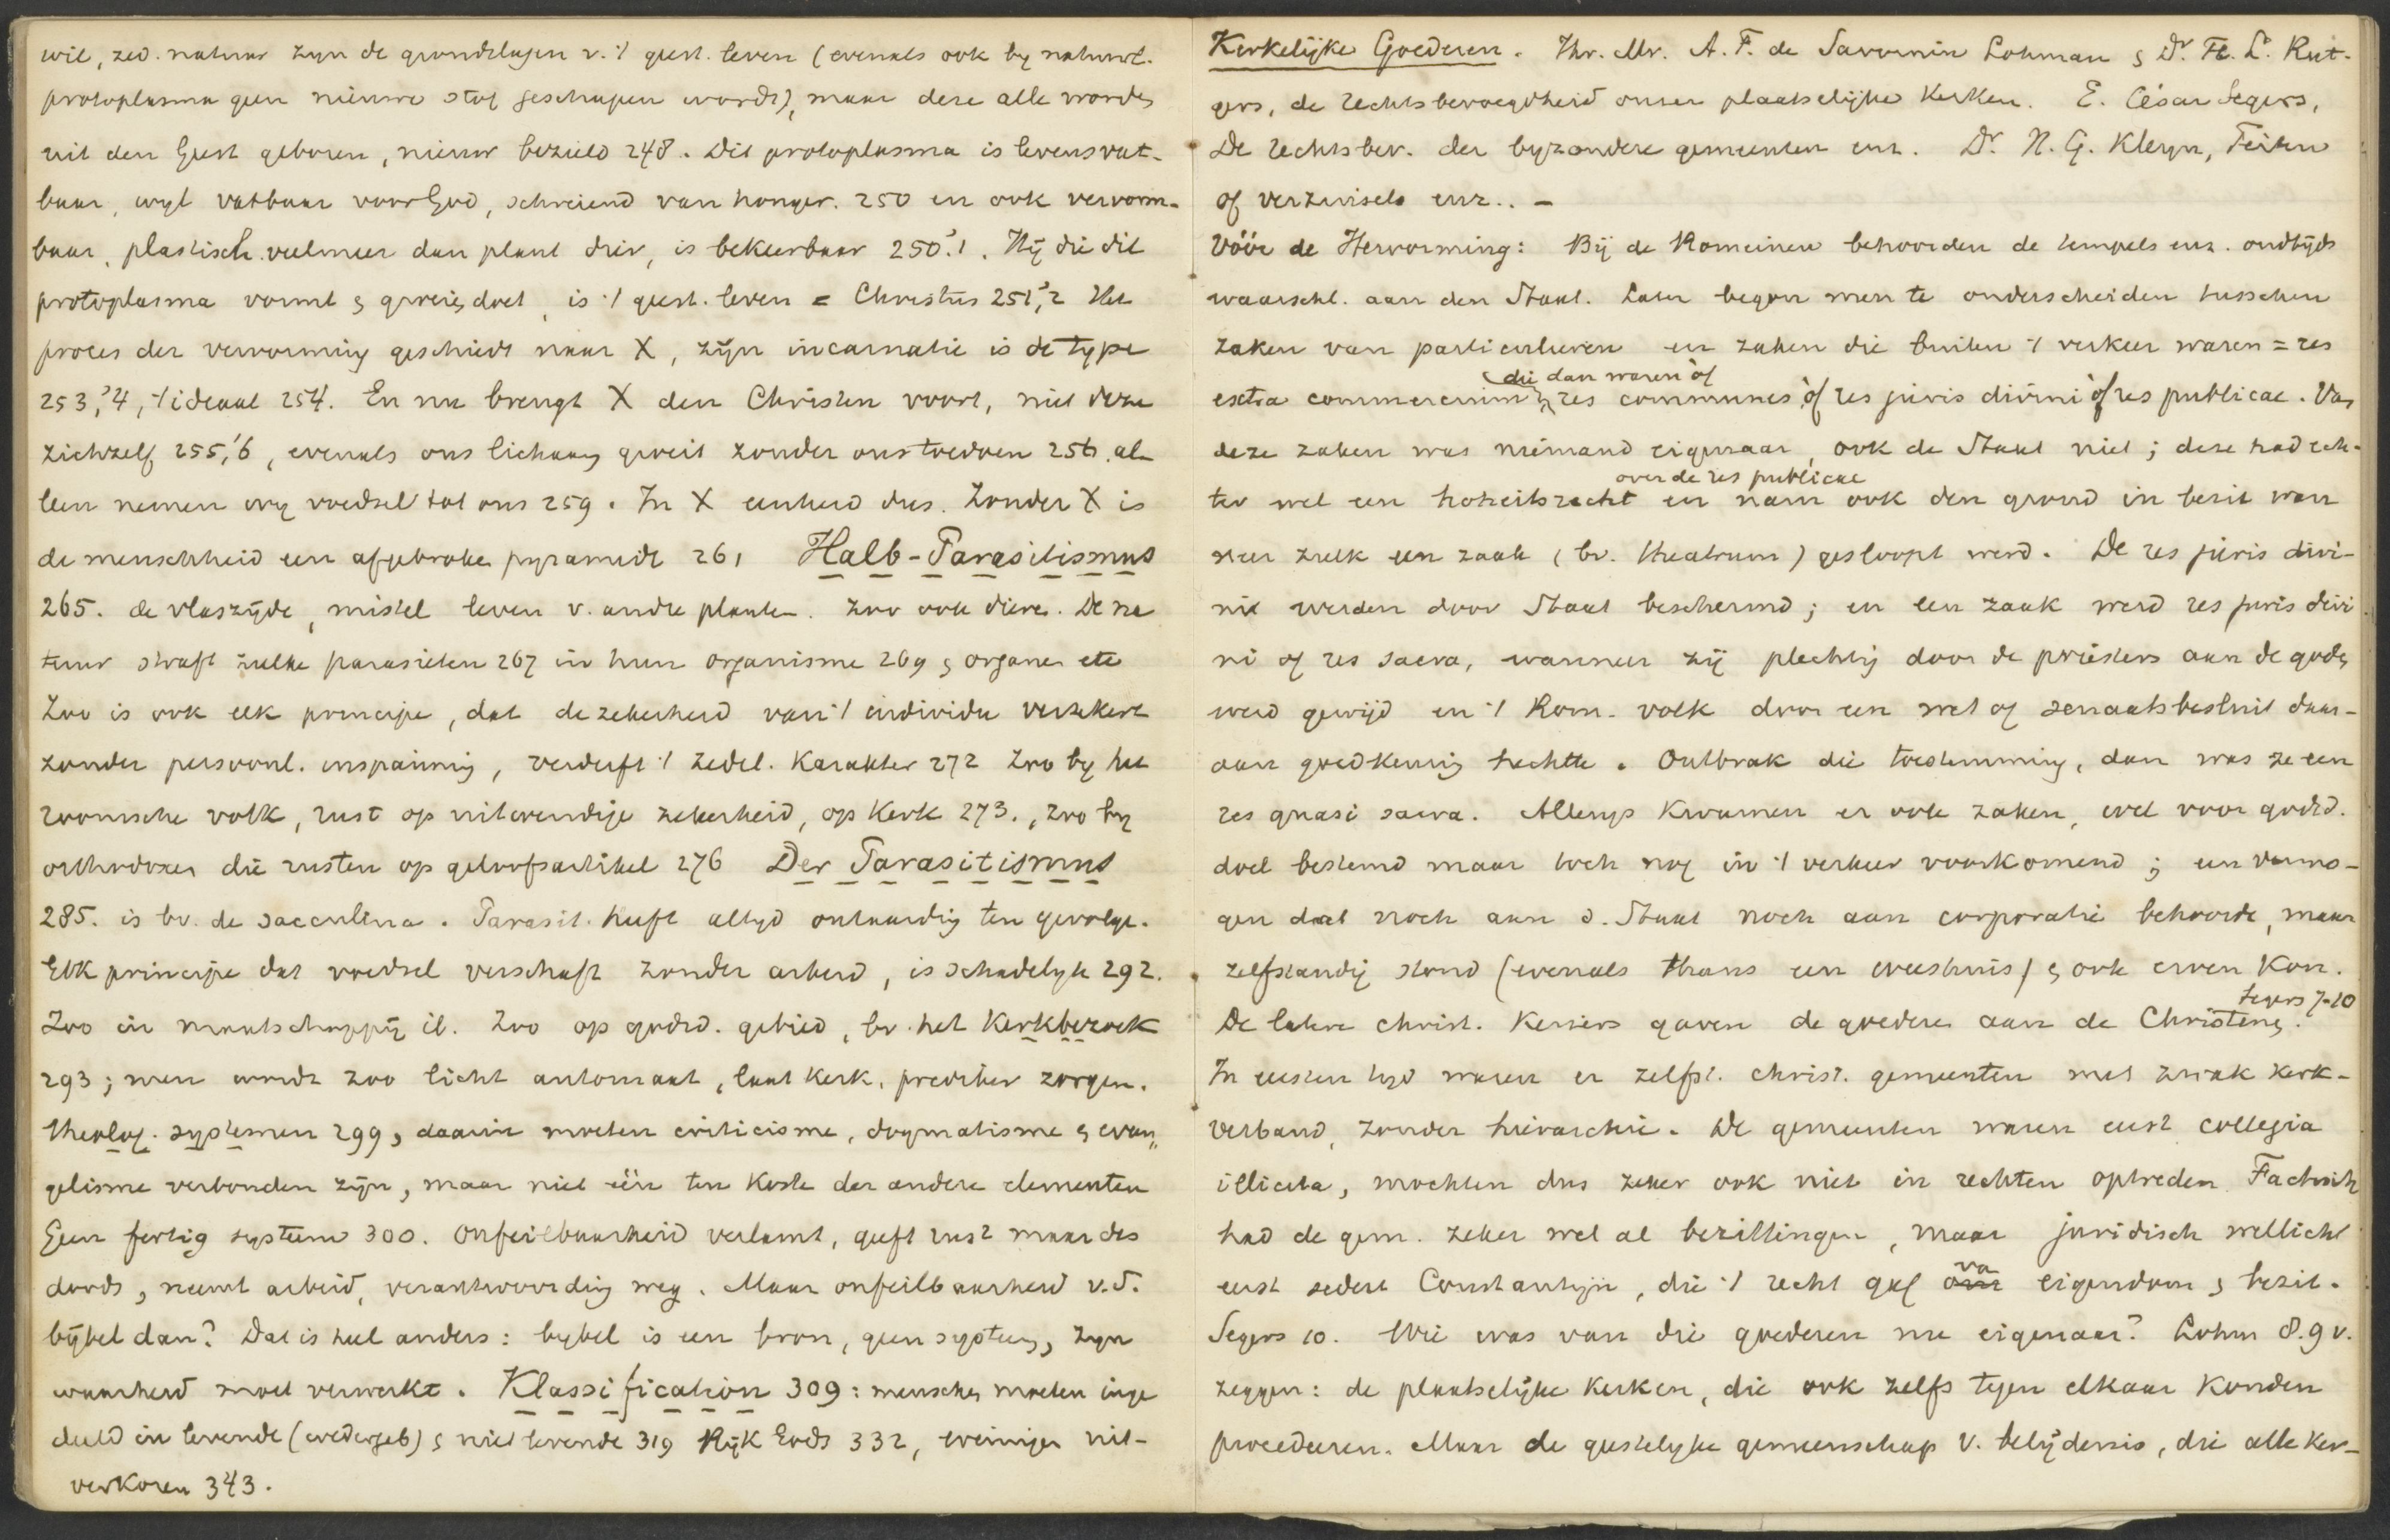 wil, zed. natuur zyn de grondslagen v. 't geest. leven (evenals ook by natuurl.
protoplasma geen nieuwe stof geschapen wordt), maar deze alle worden
uit den Geest geboren, nieuw bezield 248. Dit protoplasma is levensvat-
baar, wyl vatbaar voor God, schreiend van honger. 250 en ook vervorm-
baar, plastisch. veelmeer dan plant dier, is bekeerbaar 250.'1. Hij die dit
protoplasma vormt & groeien doet, is 't geest. leven = Christus 251,'2 Het
proces der vervorming geschiedt naar X, zijn incarnatie is de type
253,'4, 't ideaal 254. En nu brengt X den Christen voort, niet deze
zichzelf 255,'6, evenals ons lichaam groeit zonder ons toedoen 256. al-
leen nemen wy voedsel tot ons 259. In X eenheid dus. Zonder X is
de menschheid een afgebroken pyramide 261 Halb-Parasitismus
265. de vlaszijde, mistel leven v. andre planten. Zoo ook dieren. De na
tuur straft zulke parasieten 267 in hun organisme 269 & organen etc
Zoo is ook elk principe, dat de zekerheid van 't individu verzekert
zonder persoonl. inspanning, verderft 't zedel. Karakter 272 Zoo by het
roomsche volk, rust op uitwendige zekerheid, op Kerk 273., zoo by
orthodoxen die rusten op geloofsartikel 276 Der Parasitismus
285. is bv. de sacculina. Parasit. heeft altyd ontaarding ten gevolge.
Elk principe dat voedsel verschaft zonder arbeid, is schadelyk 292.
Zoo in maatschappij ib. Zoo op godsd. gebied, bv. het Kerkbezoek
293; men wordt zoo licht automaat, laat Kerk, prediker zorgen.
theolog. systemen 299, daarin moeten criticisme, dogmatisme & evan„
gelisme verbonden zijn, maar niet één ten koste der andere elementen
Geen fertig systeem 300. Onfeilbaarheid verlamt, geeft rust maar des
doods, neemt arbeid, verantwoording weg. Maar onfeilbaarheid v. d.
bijbel dan? Dat is heel anders: bybel is een bron, geen systeem, zyn
waarheid moet verwerkt. Klassification 309: menschen moeten inge
deeld in levende (wedergeb) & niet levende 319 Rijk Gods 332, weinigen uit-
verkoren 343.
Kerkelijke Goederen. Jhr. Mr. A. F. de Savornin Lohman & Dr. F. L. Rut-
gers, de rechtsbevoegdheid onzer plaatselijke Kerken. E. César Segers,
De rechtsbev. der byzondere gemeenten enz. Dr. H. G. Kleyn, Feiten
of verzinsels enz.. —
Vóór de Hervorming: Bij de Romeinen behoorden de tempels enz. oudtijds
waarschl. aan den Staat. Later begon men te onderscheiden tusschen
zaken van particulieren en zaken die buiten 't verkeer waren = res
die dan waren òf
extra commercium res communes òf res juris divini òf res publicae. Van
deze zaken was niemand eigenaar, ook de Staat niet; deze had ech-
over de res publicae
ter wel een hoheitsrecht en nam ook den grond in bezit wan
neer zulk een zaak (bv. theatrum) gesloopt werd. De res juris divi-
ni werden door Staat beschermd; en een zaak werd res juris divi
ni of res sacra, wanneer zij plechtig door de priesters aan de goden
werd gewijd en 't Rom. volk door een wet of senaatsbesluit daar-
aan goedkeuring hechtte. Ontbrak die toestemming, dan was ze een
res quasi sacra. Allengs kwamen er ook zaken, wel voor godsd.
doel bestemd maar toch nog in 't verkeer voorkomend; een vermo-
gen dat noch aan d. Staat noch aan corporatie behoorde, maar
zelfstandig stond (evenals thans een weeshuis) & ook erven kon.
Segers 7-10
De latere christ. Keizers gaven de goederen aan de Christenen.
In eersten tyd waren er zelfst. christ. gemeenten met zwak kerk-
verband, zonder hierarchie. De gemeenten waren eerst collegia
illicita, mochten dus zeker ook niet in rechten optreden. Factisch
had de gem. zeker wel al bezittingen, maar juridisch wellicht
va
eerst sedert Constantijn, die 't recht gaf eigendom & bezit.
Segers 10. Wie was van die goederen nu eigenaar? Lohm 8.9 v.
zeggen: de plaatselijke Kerken, die ook zelfs tegen elkaar konden
procedeeren. Maar de geestelyke gemeenschap v. belijdenis, die alle ker-